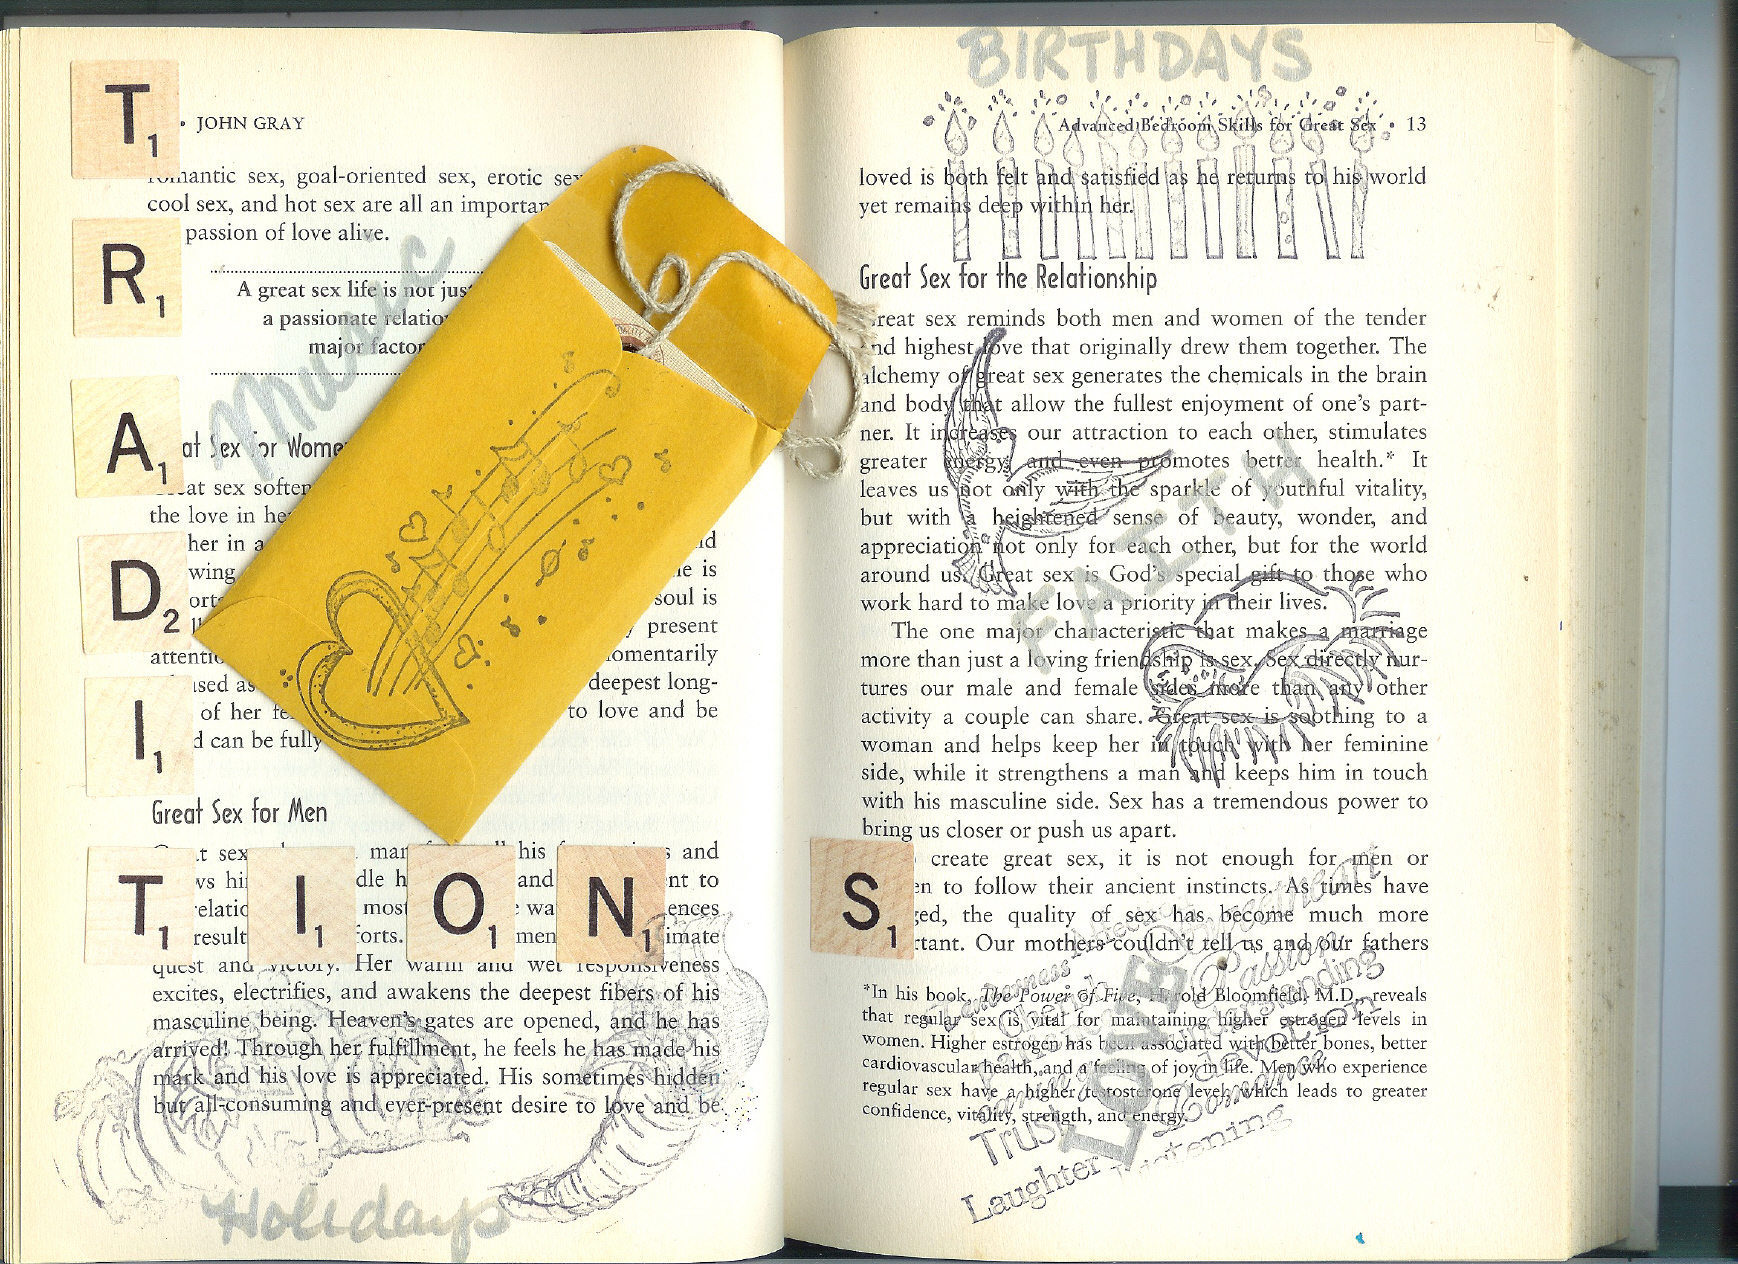 T1
R1
A1
D2
I1
T1 I1 O1 N1 S1
• JOHN GRAY
romantic sex, goal-oriented sex, erotic sex
cool sex, and hot sex are all an importan
passion of love alive.
A great sex life is not just
a passionate relatio
major factor
Music
at Sex for Wome
eat sex soften
the love in he
her in a
wing
ort
attentio
sed as
of her fe
d can be fully
ld
ne is
soul is
y present
omentarily
deepest long-
to love and be
Great Sex for Men
t sex his s and
ws hi dle h and nt to
relatio most wa ences
result forts. men imate
quest and victory. Her warm and wet responsiveness
excites, electrifies, and awakens the deepest fibers of his
masculine being. Heaven's gates are opened, and he has
arrived! Through her fulfillment, he feels he has made his
mark and his love is appreciated. His sometimes hidden
but all-consuming and ever-present desire to love and be
Holidays
BIRTHDAYS
Advanced Bedroom Skills for Great Sex • 13
loved is both felt and satisfied as he returns to his world
yet remains deep within her.
Great Sex for the Relationship
Great sex reminds both men and women of the tender
and highest love that originally drew them together. The
alchemy of great sex generates the chemicals in the brain
and body that allow the fullest enjoyment of one's part-
ner. It increases our attraction to each other, stimulates
greater energy, and even promotes better health.* It
leaves us not only with the sparkle of youthful vitality,
but with a heightened sense of beauty, wonder, and
appreciation not only for each other, but for the world
around us. Great sex is God's special gift to those who
work hard to make love a priority in their lives.
FAITH
The one major characteristic that makes a marriage
more than just a loving friendship is sex. Sex directly nur-
tures our male and female sides more than any other
activity a couple can share. Great sex is soothing to a
woman and helps keep her in touch with her feminine
side, while it strengthens a man and keeps him in touch
with his masculine side. Sex has a tremendous power to
bring us closer or push us apart.
create great sex, it is not enough for men or
en to follow their ancient instincts. As times have
ged, the quality of sex has become much more
rtant. Our mothers couldn't tell us and our fathers
*In his book, The Power of Five, Harold Bloomfield, M.D., reveals
that regular sex is vital for maintaining higher estrogen levels in
women. Higher estrogen has been associated with better bones, better
cardiovascular health, and a feeling of joy in life. Men who experience
regular sex have a higher testosterone level, which leads to greater
confidence, vitality, strength, and energy.
Affection
Sweetheart
Tenderness
Passion
Understanding
LOVE
devotion
Romance
Trust
Listening
Laughter